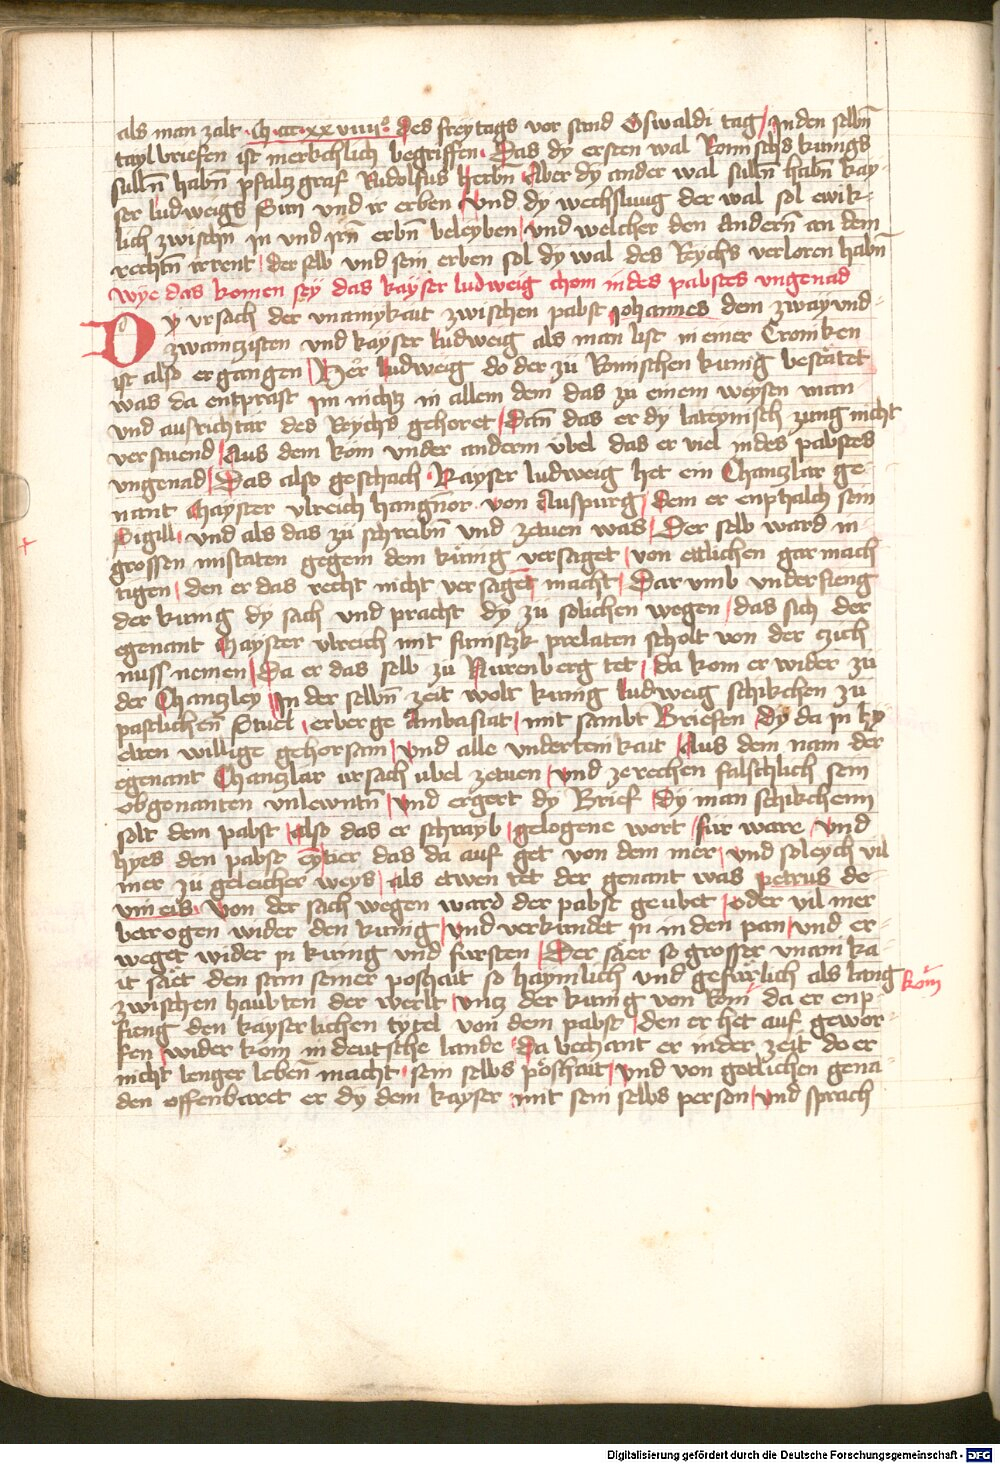 als man zalt M ccc xx viiii° Des freytags vor sand Oswaldi tag In den selbñ
taylbriefen ist merkchlich begriffen Das dy ersten wal Romischs kunigs
sullñ habñ pfaltzgraf Rudolfus Herbñ Aber dy ander wal sullñ habñ kay-
ser ludweigs Sun und ir erben Und dy wechslung der wal sol ewik-
lich zwischñ in und irñ erbñ beleyben und welcher den andern an dem
rechtñ irrent der selb und sein erben sol dy wal des Reychs verloren habñ
Wye das komen sey das kayser ludweig chom in des pabstes ungenad
Dy ursach der unamykait zwischen pabst Johannes dem zway und
zwainczisten und kayser ludweig als man list in einer Croniken
ist also ergangen Her ludweig do der zu Romischen kunig bestätet
was da entprast im nichtz in allem dem das zu einem weysen man
und ausrichtär des Reychs gehoret Dañ das er dy lateynisch zung nicht
verstuend Aus dem kom under anderm übel das er viel in des pabstes
ungenad Das also geschach Kayser ludweig het ein Chanzlar ge-
nant Mayster ulreich hangnor von Auspurg dem er enphalch sein
Sigill und als das zu schreibñ und zetuen was Der selb ward in
grossen mistaten gegem dem kunig versaget von ettlichen gar mach
tigen den er das recht nicht versaget macht Dar umb understeng
der kunig dy sach und pracht dy zu solichen wegen das sich der
egenant Mayster ulreich mit funfczk prelaten scholt von der czich
nuss nemen Da er das selb zu Nurenberg tet da kom er wider zu
der Chanczley In der selbñ zeit wolt kunig ludweig schikchen zu
pastlichen Stuel erberge Ambasiat mit sambt Briefen dy da in hy
elten willige gehorsam und alle undertenikait Aus dem nam der
egenant Chanczlar ursach ubel zetuen und zerechen falschlich sein
obgenanten unlewntñ und ergert dy Brief Dy man schikchenn
solt dem pabst also das er schrayb gelogene wort für ware und
hyes den pabst ein tier das da auf get von dem mer und soleych vil
mer zu geleicher weys als etwen tet der genant was petrus de
vineis Von der sach wegen ward der pabst geubet oder vil mer
betrogen wider den kunig und verkundet in in den pan und er-
weget wider in kunig und fursten Der säer so grosser unami ka-
it säet den sam seiner poshait so haymlich und gefärlich als lang
zwischen haubten der werlt untz der kunig von Rom da er enp-
fieng den kayserlichen tytel von dem pabst den er het auf gewor-
fen wider kom in deutsche lande da bechant er in der zeit do er
nicht lenger leben macht sein selbs poshait und von gotlichen gena
den offenbaret er dy dem kayser mit sein selbs person und sprach
kom
Digitalisierung gefördert durch die Deutsche Forschungsgemeinschaft - DFG